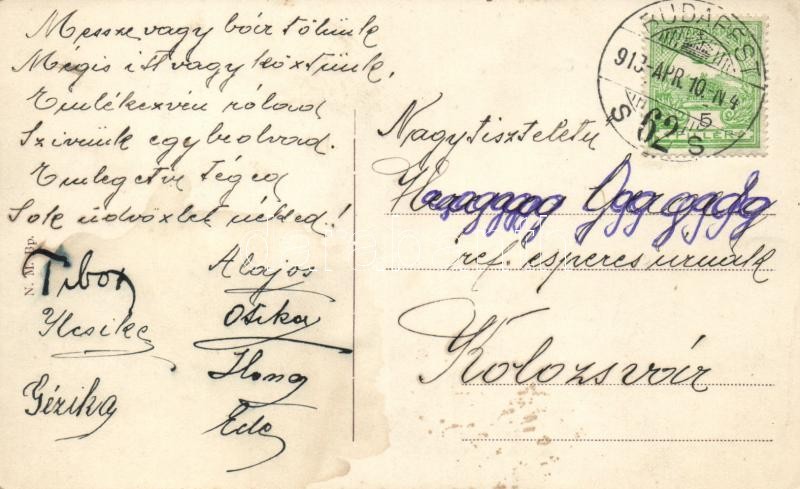 Messze vagy bár tőlünk
Mégis itt vagy köztünk,
Emlékezvén rólad
Szivünk egybeolvad.
Emlegetve téged
Sok üdvözlet néked!
Tibor
Ilcsike
Gézika
Alajos
Ötike
Ilona
Ede
N. M. Bp.
BUDAPEST
913 APR. 10. N 4
62
5
Nagytiszteletű
ref. esperes urnak
Kolozsvár